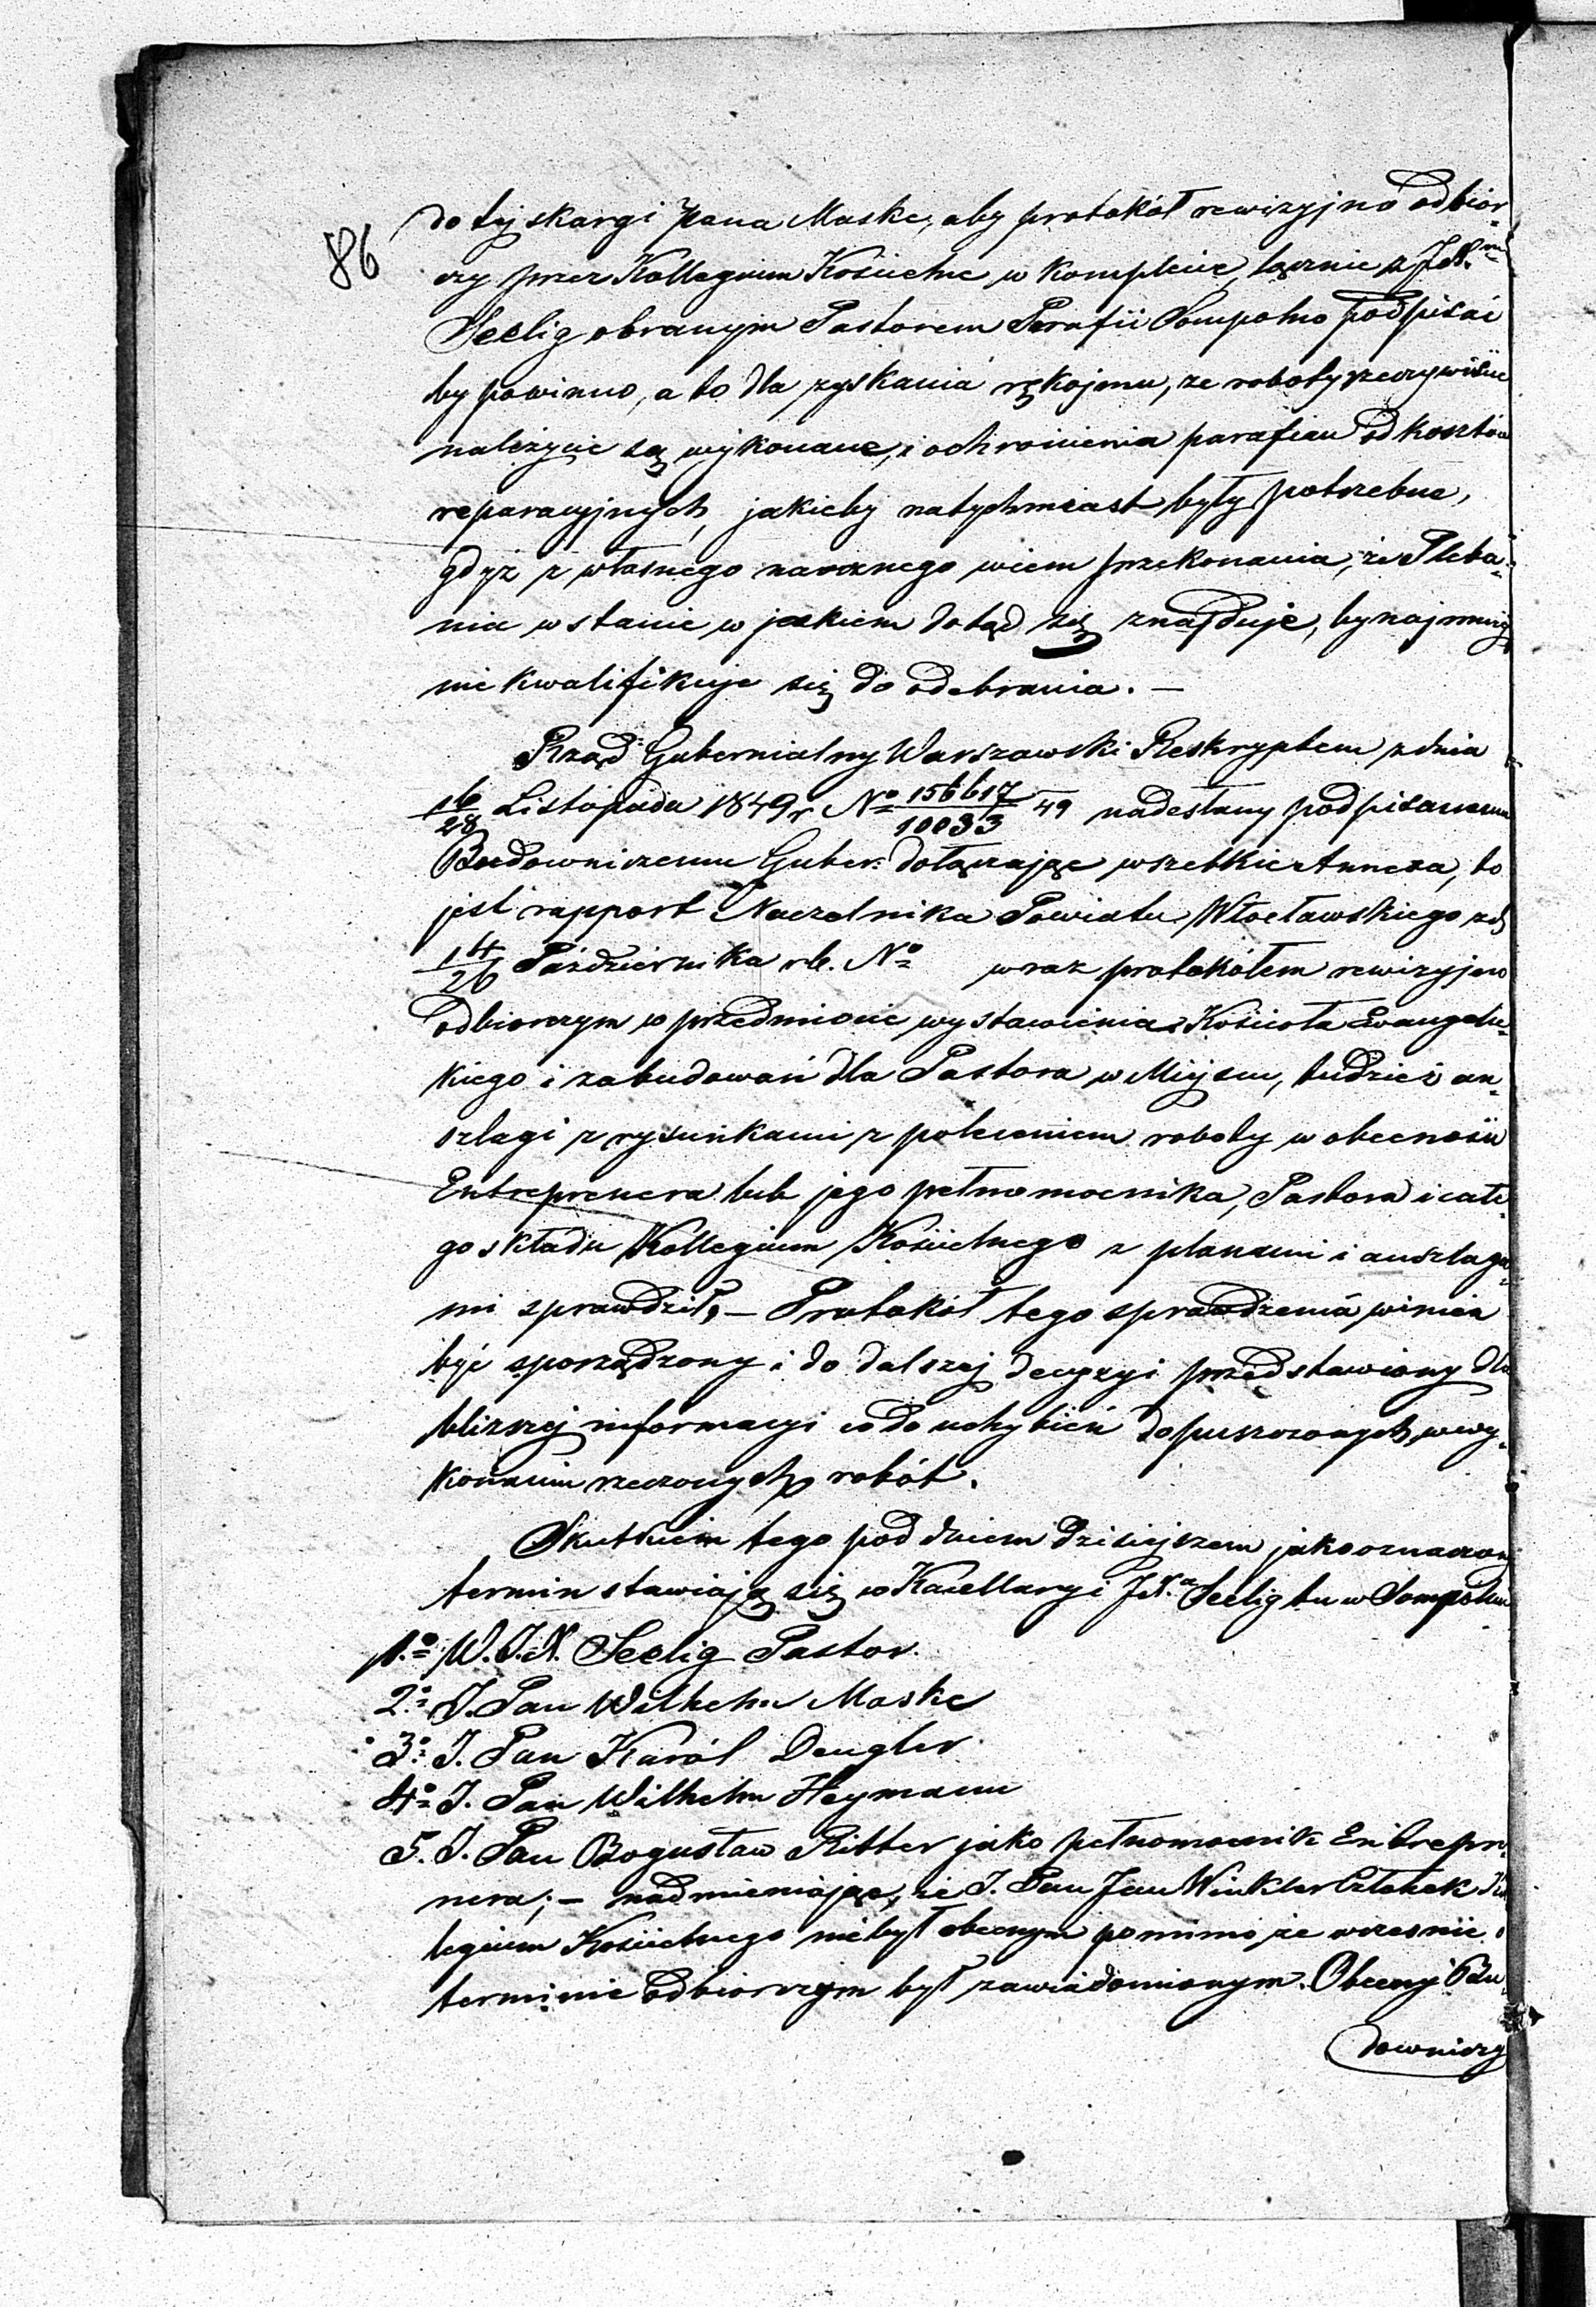 86
do tej skargi Pana Maske, aby protokół rewizyjno odbior
czy przez Kollegium Kościelne w komplecie, łącznie z JX.
Seelig obranym Pastorem Parafii Sompolno podpisać
by powinno, a to dla zyskania rękojmu, że roboty rzeczywiście
należycie są wykonane, i ochronienia parafian od kosztów
reparacyjnych, jakieby natychmiast były potrzebne,
gdyż z własnego naocznego wiem przekonania, że Pleba-
nia w stanie w jakiem dotąd się znajduje, bynajmniej
nie kwalifikuje się do odebrania. —
Rząd Gubernialny Warszawski Reskryptem z dnia
16/28 Listopada 1849 r. No 156617/10033 49 nadesłany podpisanemu
Budowniczemu Guber: dołączając wszelkie Annexa, to
jest rapport Naczelnika Powiatu Włocławskiego z d
14/26 Października rb. No wraz protokółem rewizyjno
odbiorczym w przedmiocie wystawienia Kościoła Ewangelic-
kiego i zabudowań dla Pastora w Miejscu, tudzież an-
szlagi z rysunkami z poleceniem roboty w obecności
Entreprenera lub jego pełnomocnika, Pastora i całe-
go składu Kollegium Kościelnego z planami i anszlaga-
mi sprawdził, — Protokół tego sprawdzenia winien
być sporządzony i do dalszej decyzyi przedstawiony dla
bliższej informacyi co do uchybień dopuszczonych w wy-
konaniu rzeczonych robót.
Skutkiem tego pod dniem dzisiejszem jako oznaczony
termin stawiają się w Kancellaryi JX. Seelig tu w Sompolnie
1.o W. J.X. Seelig Pastor.
2.o J. Pan Wilhelm Maske
3.o J. Pan Karól Dengler
4.o J. Pan Wilhelm Heymann
5. J. Pan Bogusław Ritter jako pełnomocnik Entrepre-
nera; — nadmieniając, że J. Pan Jan Winkler Członek Kol
legium Kościelnego nie był obecnym pomimo, że wcześnie o
terminie odbiorczym był zawiadomionym. Obecny Bu-
downiczy